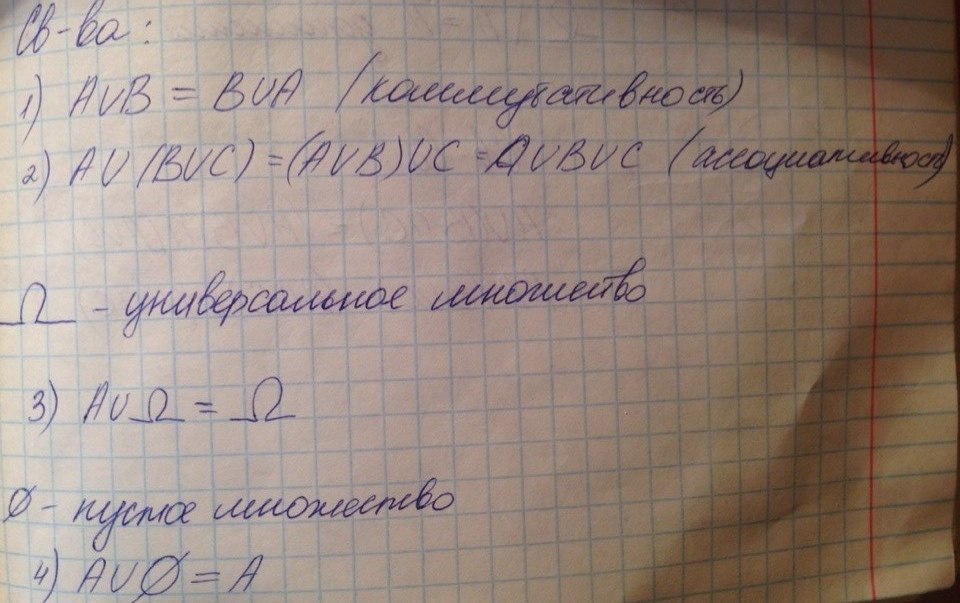 Св-ва:
1) A∪B = B∪A (коммутативность)
2) A∪(B∪C) = (A∪B)∪C = A∪B∪C (ассоциативность)
Ω - универсальное множество
3) A∪Ω = Ω
∅ - пустое множество
4) A∪∅ = A